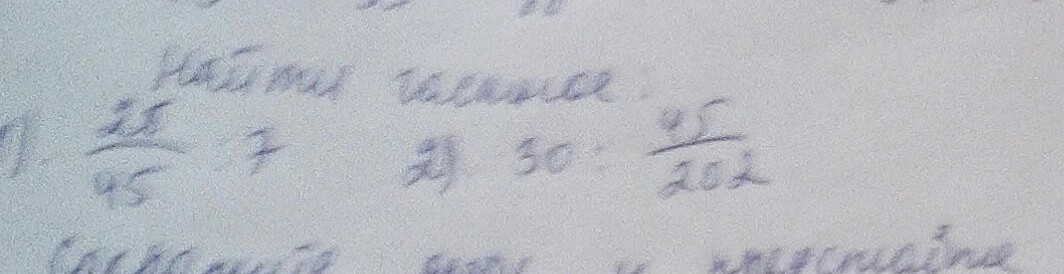 Найти частное:
1) 28/45 : 7 2) 30 : 45/202
и